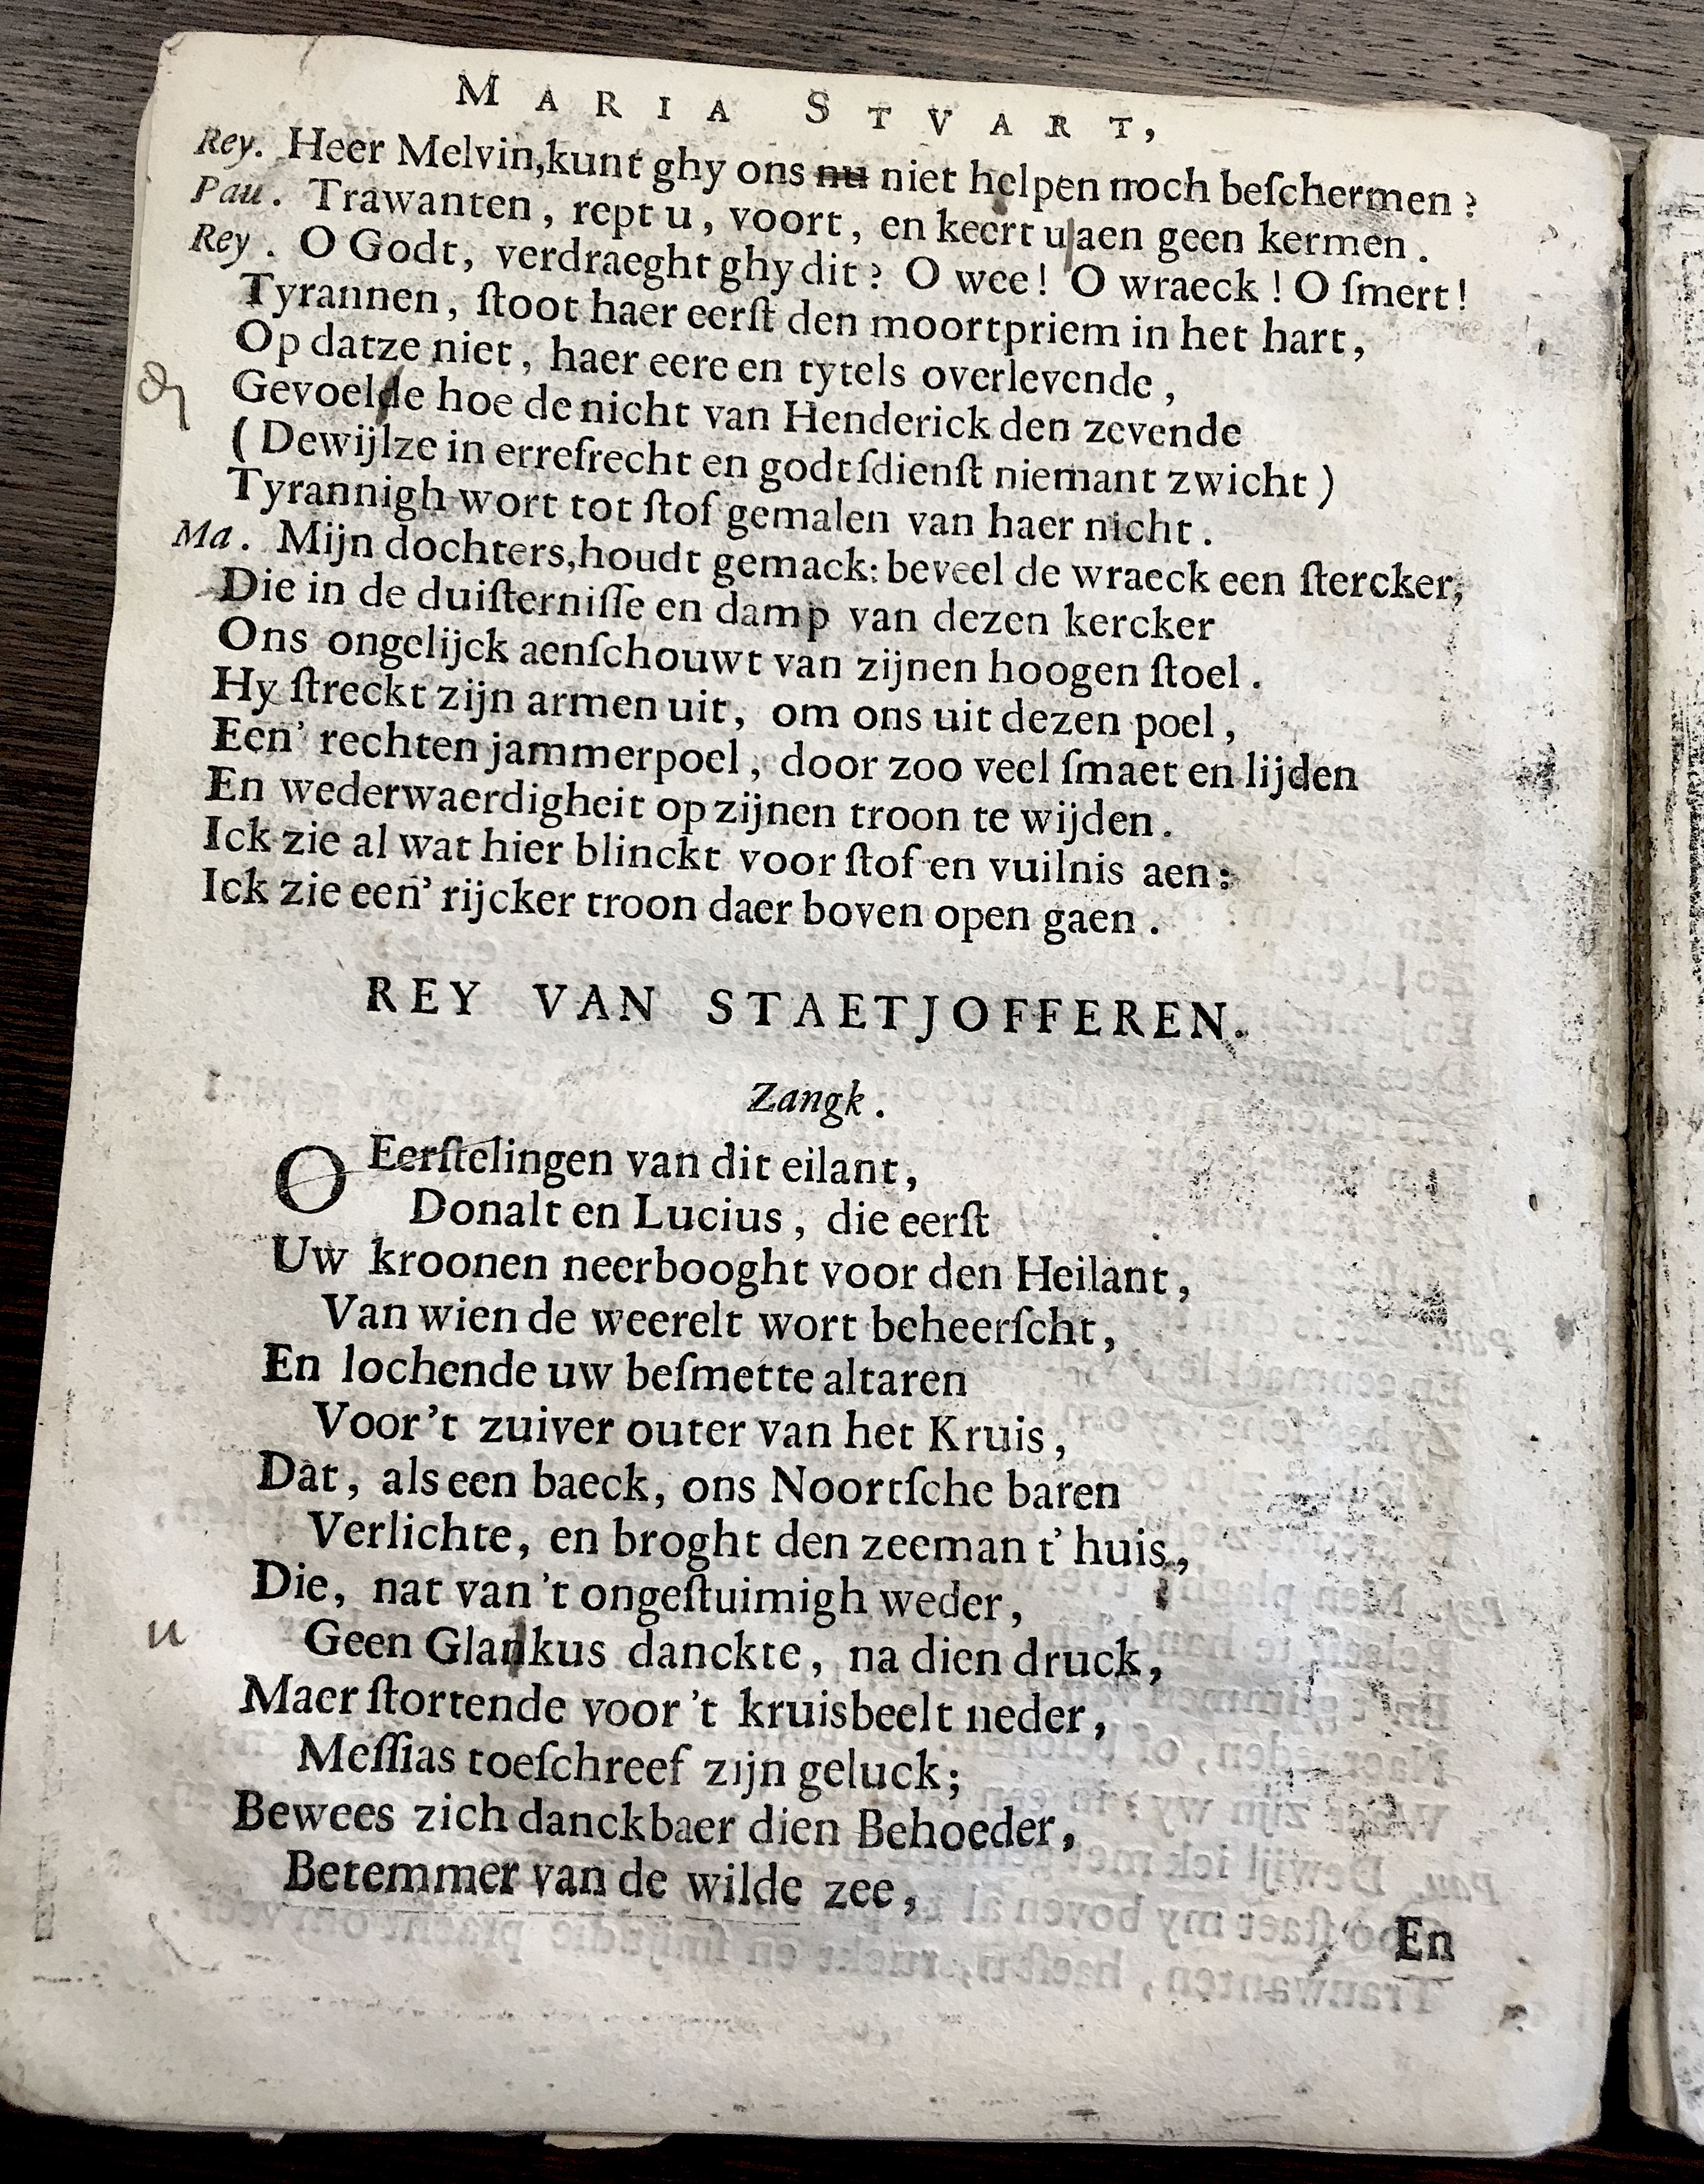 MARIA STVART,
Rey. Heer Melvin,kunt ghy ons nu niet helpen noch beſchermen?
Pau. Trawanten, rept u, voort, en keert u aen geen kermen.
Rey. O Godt, verdraeght ghy dit? O wee! O wraeck! O ſmert!
Tyrannen, ſtoot haer eerſt den moortpriem in het hart,
Op datze niet, haer eere en tytels overlevende,
Gevoelde hoe de nicht van Henderick den zevende
(Dewijlze in errefrecht en godtſdienſt niemant zwicht)
Tyrannigh wort tot ſtof gemalen van haer nicht.
Ma. Mijn dochters,houdt gemack: beveel de wraeck een ſtercker,
Die in de duiſterniſſe en damp van dezen kercker
Ons ongelijck aenſchouwt van zijnen hoogen ſtoel.
Hy ſtreckt zijn armen uit, om ons uit dezen poel,
Een' rechten jammerpoel, door zoo veel ſmaet en lijden
En wederwaerdigheit op zijnen troon te wijden.
Ick zie al wat hier blinckt voor ſtof en vuilnis aen:
Ick zie een' rijcker troon daer boven open gaen.
REY VAN STAETJOFFEREN.
Zangk.
O Eerſtelingen van dit eilant,
Donalt en Lucius, die eerſt
Uw kroonen neerbooght voor den Heilant,
Van wien de weerelt wort beheerſcht,
En lochende uw beſmette altaren
Voor't zuiver outer van het Kruis,
Dat, als een baeck, ons Noortſche baren
Verlichte, en broght den zeeman t' huis,
Die, nat van 't ongeſtuimigh weder,
u Geen Glankus danckte, na dien druck,
Maer ſtortende voor 't kruisbeelt neder,
Meſſias toeſchreef zijn geluck;
Bewees zich danckbaer dien Behoeder,
Betemmer van de wilde zee,
En